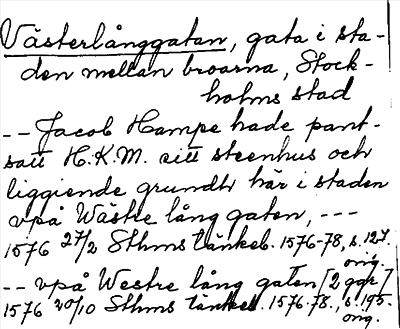 Västerlånggatan, gata i sta-
den mellan broarna, Stock-
holms stad
-- Jacob Hampe hade pant-
satt H.K.M. sitt steenhus och
liggiende grundh här i staden
vpå Wästre lång gaten, ---
1576 27/2 Sthms tänkeb. 1576-78, s. 127.
orig.
-- vpå Westre lång gaten [2 ggr]
1576 20/10 Sthms tänkeb. 1576-78., s. 195.
orig.